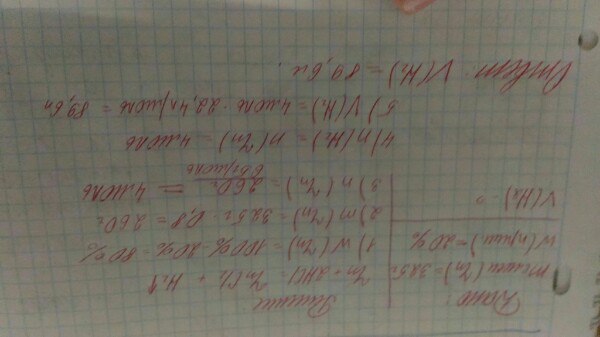 Дано: Решение:
m смеси (Zn) = 325 г Zn + 2HCl = ZnCl₂ + H₂↑
w(прим) = 20% 1) w(Zn) = 100% - 20% = 80%
V(H₂) - ? 2) m(Zn) = 325 г · 0,8 = 260 г
3) n(Zn) = 260 г / 65 г/моль = 4 моль
4) n(H₂) = n(Zn) = 4 моль
5) V(H₂) = 4 моль · 22,4 л/моль = 89,6 л
Ответ: V(H₂) = 89,6 л.